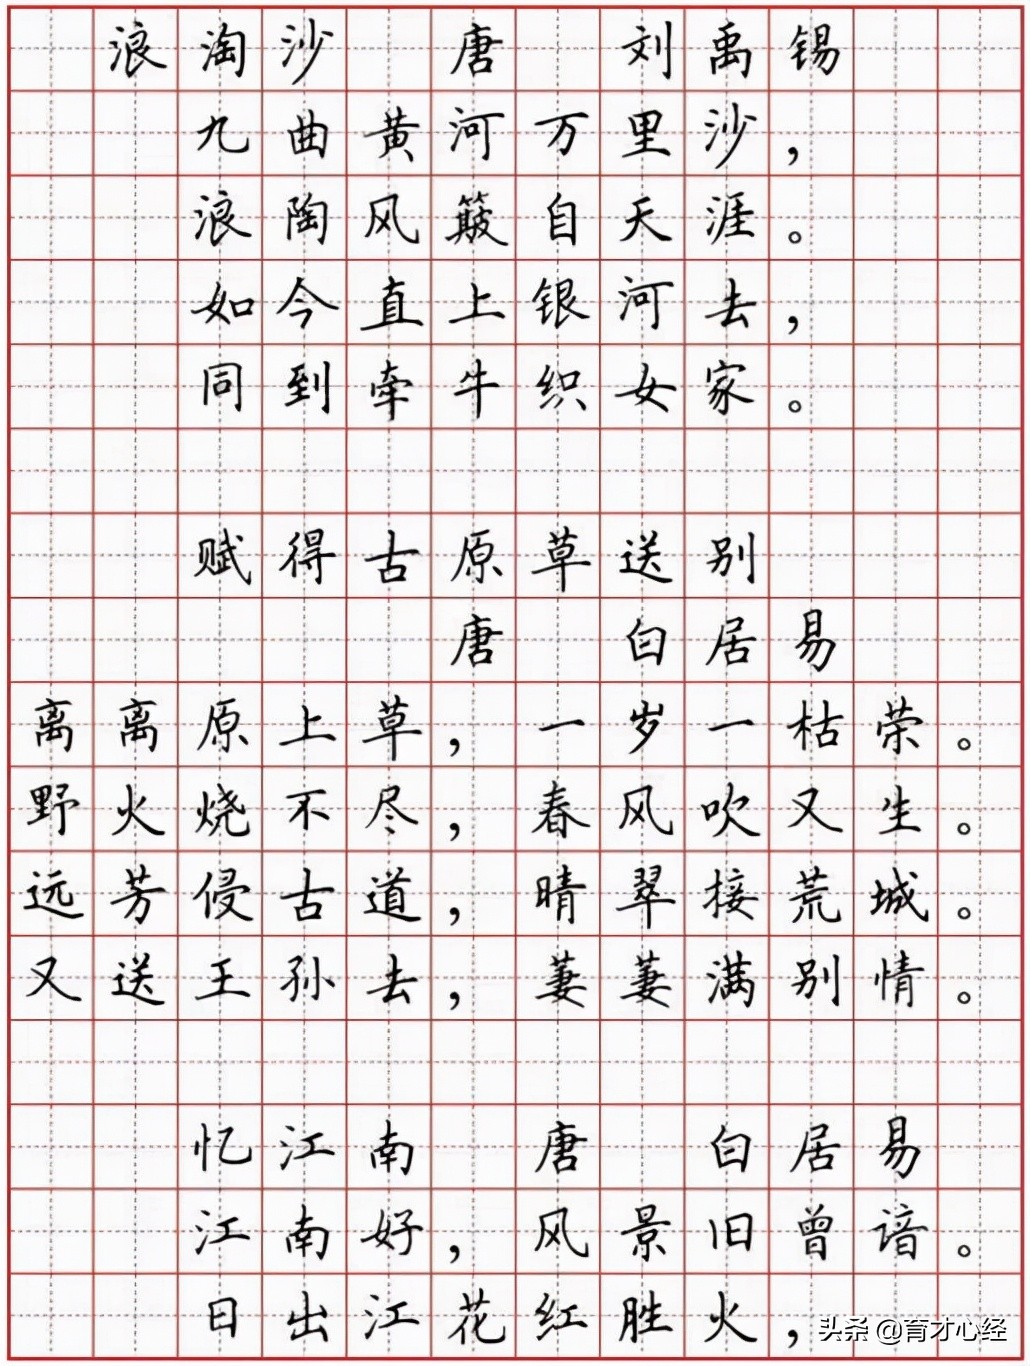 浪淘沙 唐 刘禹锡
九曲黄河万里沙，
浪陶风簸自天涯。
如今直上银河去，
同到牵牛织女家。
赋得古原草送别
唐 白居易
离离原上草，一岁一枯荣。
野火烧不尽，春风吹又生。
远芳侵古道，晴翠接荒城。
又送王孙去，萋萋满别情。
忆江南 唐 白居易
江南好，风景旧曾谙。
日出江花红胜火，
头条 @育才心经